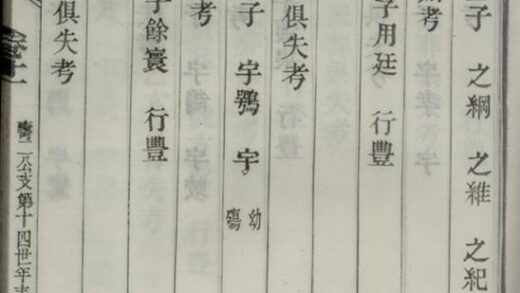 子 之綱 之維 之紀
考
子用廷 行豐
俱失考
子 字鶚 字
幼
鶚
考
子餘寰 行豐
俱失考
二公支第十四世年